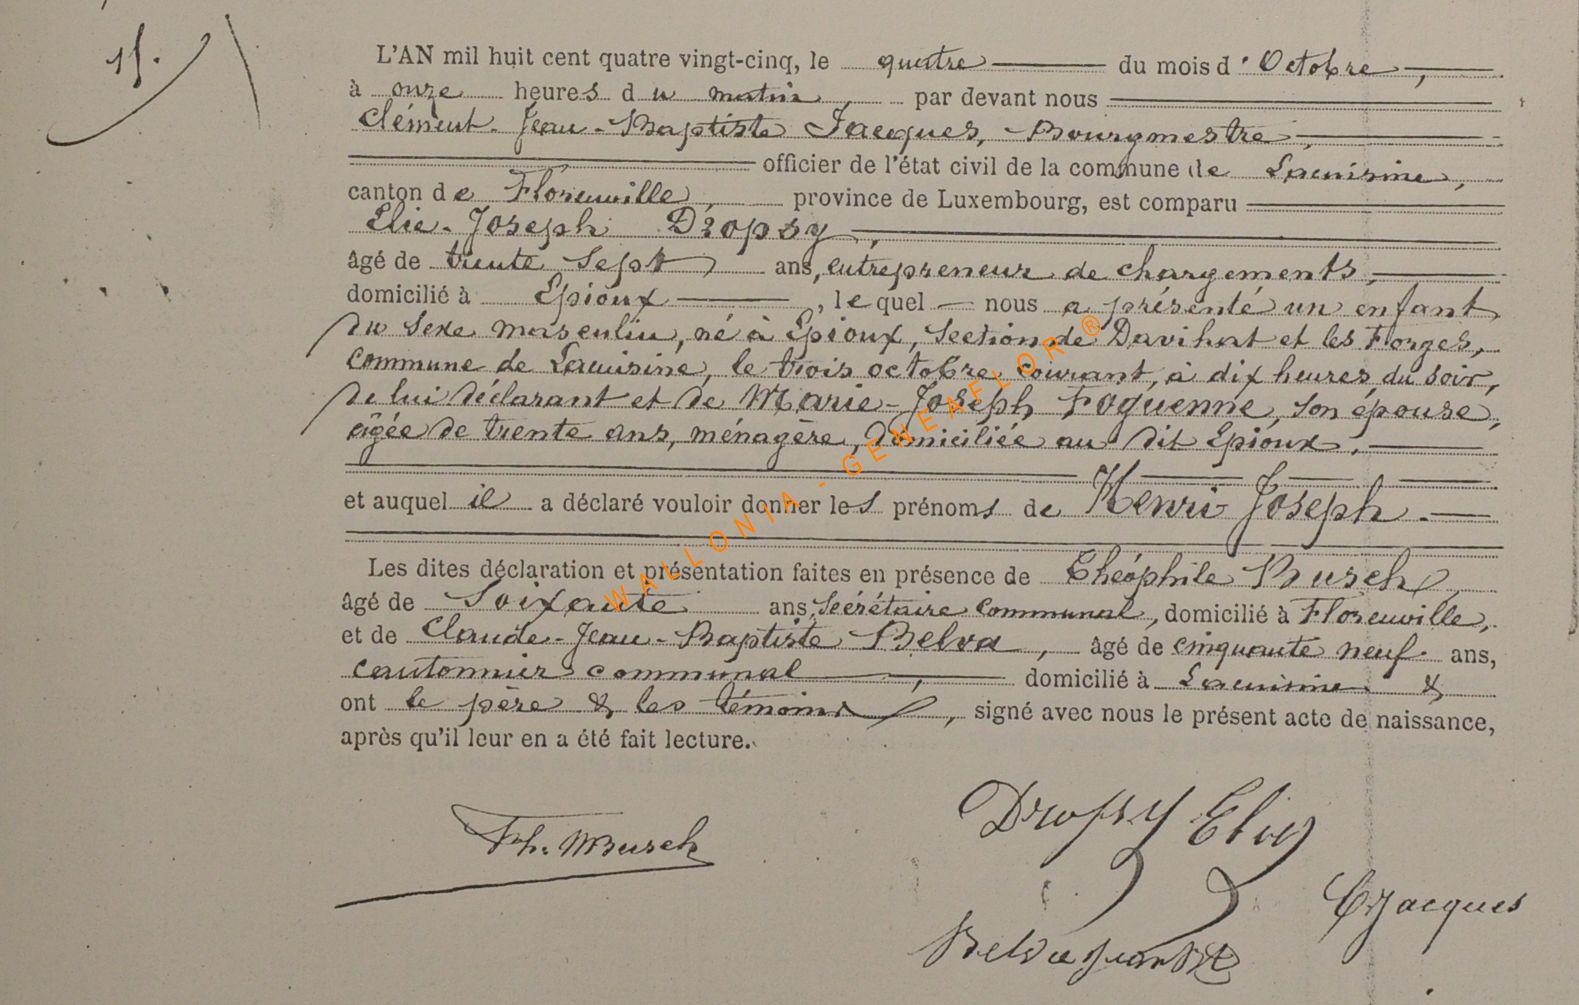 15.
L'AN mil huit cent quatre vingt-cinq, le quatre du mois d'Octobre,
à onze heures du matin, par devant nous
Clément-Jean-Baptiste Jacques, Bourgmestre,
officier de l'état civil de la commune de Lacuisine,
canton de Florenville, province de Luxembourg, est comparu
Elie-Joseph Dropsy,
âgé de trente sept ans, entrepreneur de chargements,
domicilié à Epioux, lequel nous a présenté un enfant
du sexe masculin, né à Epioux, section de Davihat et les Forges,
commune de Lacuisine, le trois octobre courant, à dix heures du soir,
de lui déclarant et de Marie-Joseph Foguenne, son épouse,
âgée de trente ans, ménagère, domiciliée au dit Epioux.
et auquel il a déclaré vouloir donner les prénoms de Henri Joseph.
Les dites déclaration et présentation faites en présence de Théophile Busch
âgé de Soixante ans, Secrétaire communal, domicilié à Florenville,
et de Claude-Jean-Baptiste Belva, âgé de cinquante neuf ans,
cantonnier communal, domicilié à Lacuisine &
ont le père & les témoins, signé avec nous le présent acte de naissance,
après qu'il leur en a été fait lecture.
Dropsy Elie
Th. Busch
CJacques
Belva Jean Bte
WALLONIA - GENEAFLOR ®